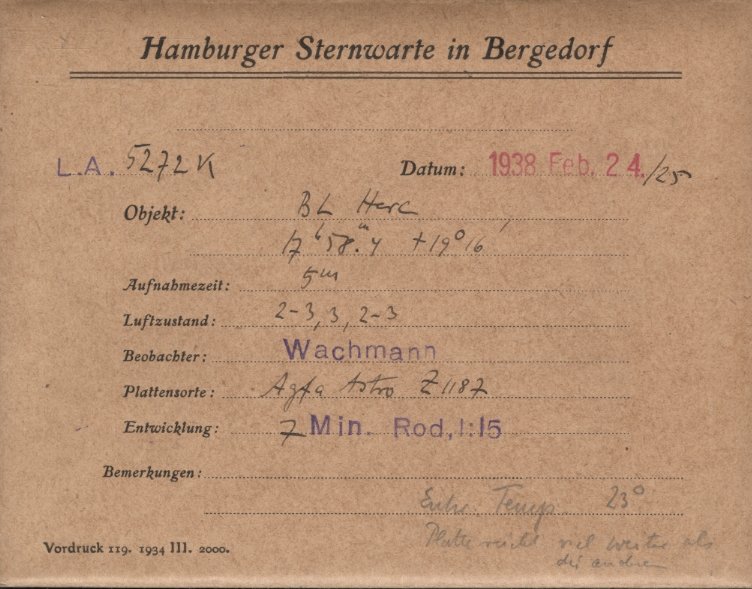 Hamburger Sternwarte in Bergedorf
L.A. 5272 K Datum: 1938 Feb. 24./25
Objekt: BL Herc
17ʰ 58.ᵐ4 +19° 16′
Aufnahmezeit: 5ᵐ
Luftzustand: 2-3, 3, 2-3
Beobachter: Wachmann
Plattensorte: Agfa Astro Z 1187
Entwicklung: 7 Min. Rod, 1:15
Bemerkungen:
Entw. Temp. 23°
Platte reicht viel weiter als
die andren
Vordruck 119. 1934 III. 2000.